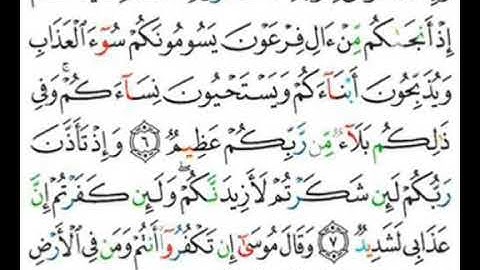 إِذْ أَنجَىٰكُم مِّنْ ءَالِ فِرْعَوْنَ يَسُومُونَكُمْ سُوٓءَ ٱلْعَذَابِ
وَيُذَبِّحُونَ أَبْنَآءَكُمْ وَيَسْتَحْيُونَ نِسَآءَكُمْ ۚ وَفِى
ذَٰلِكُم بَلَآءٌ مِّن رَّبِّكُمْ عَظِيمٌ ۝٦ وَإِذْ تَأَذَّنَ
رَبُّكُمْ لَئِن شَكَرْتُمْ لَأَزِيدَنَّكُمْ ۖ وَلَئِن كَفَرْتُمْ إِنَّ
عَذَابِى لَشَدِيدٌ ۝٧ وَقَالَ مُوسَىٰٓ إِن تَكْفُرُوٓا۟ أَنتُمْ وَمَن فِى ٱلْأَرْضِ